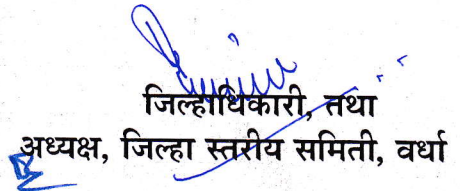 जिल्हाधिकारी, तथा
अध्यक्ष, जिल्हा स्तरीय समिती, वर्धा